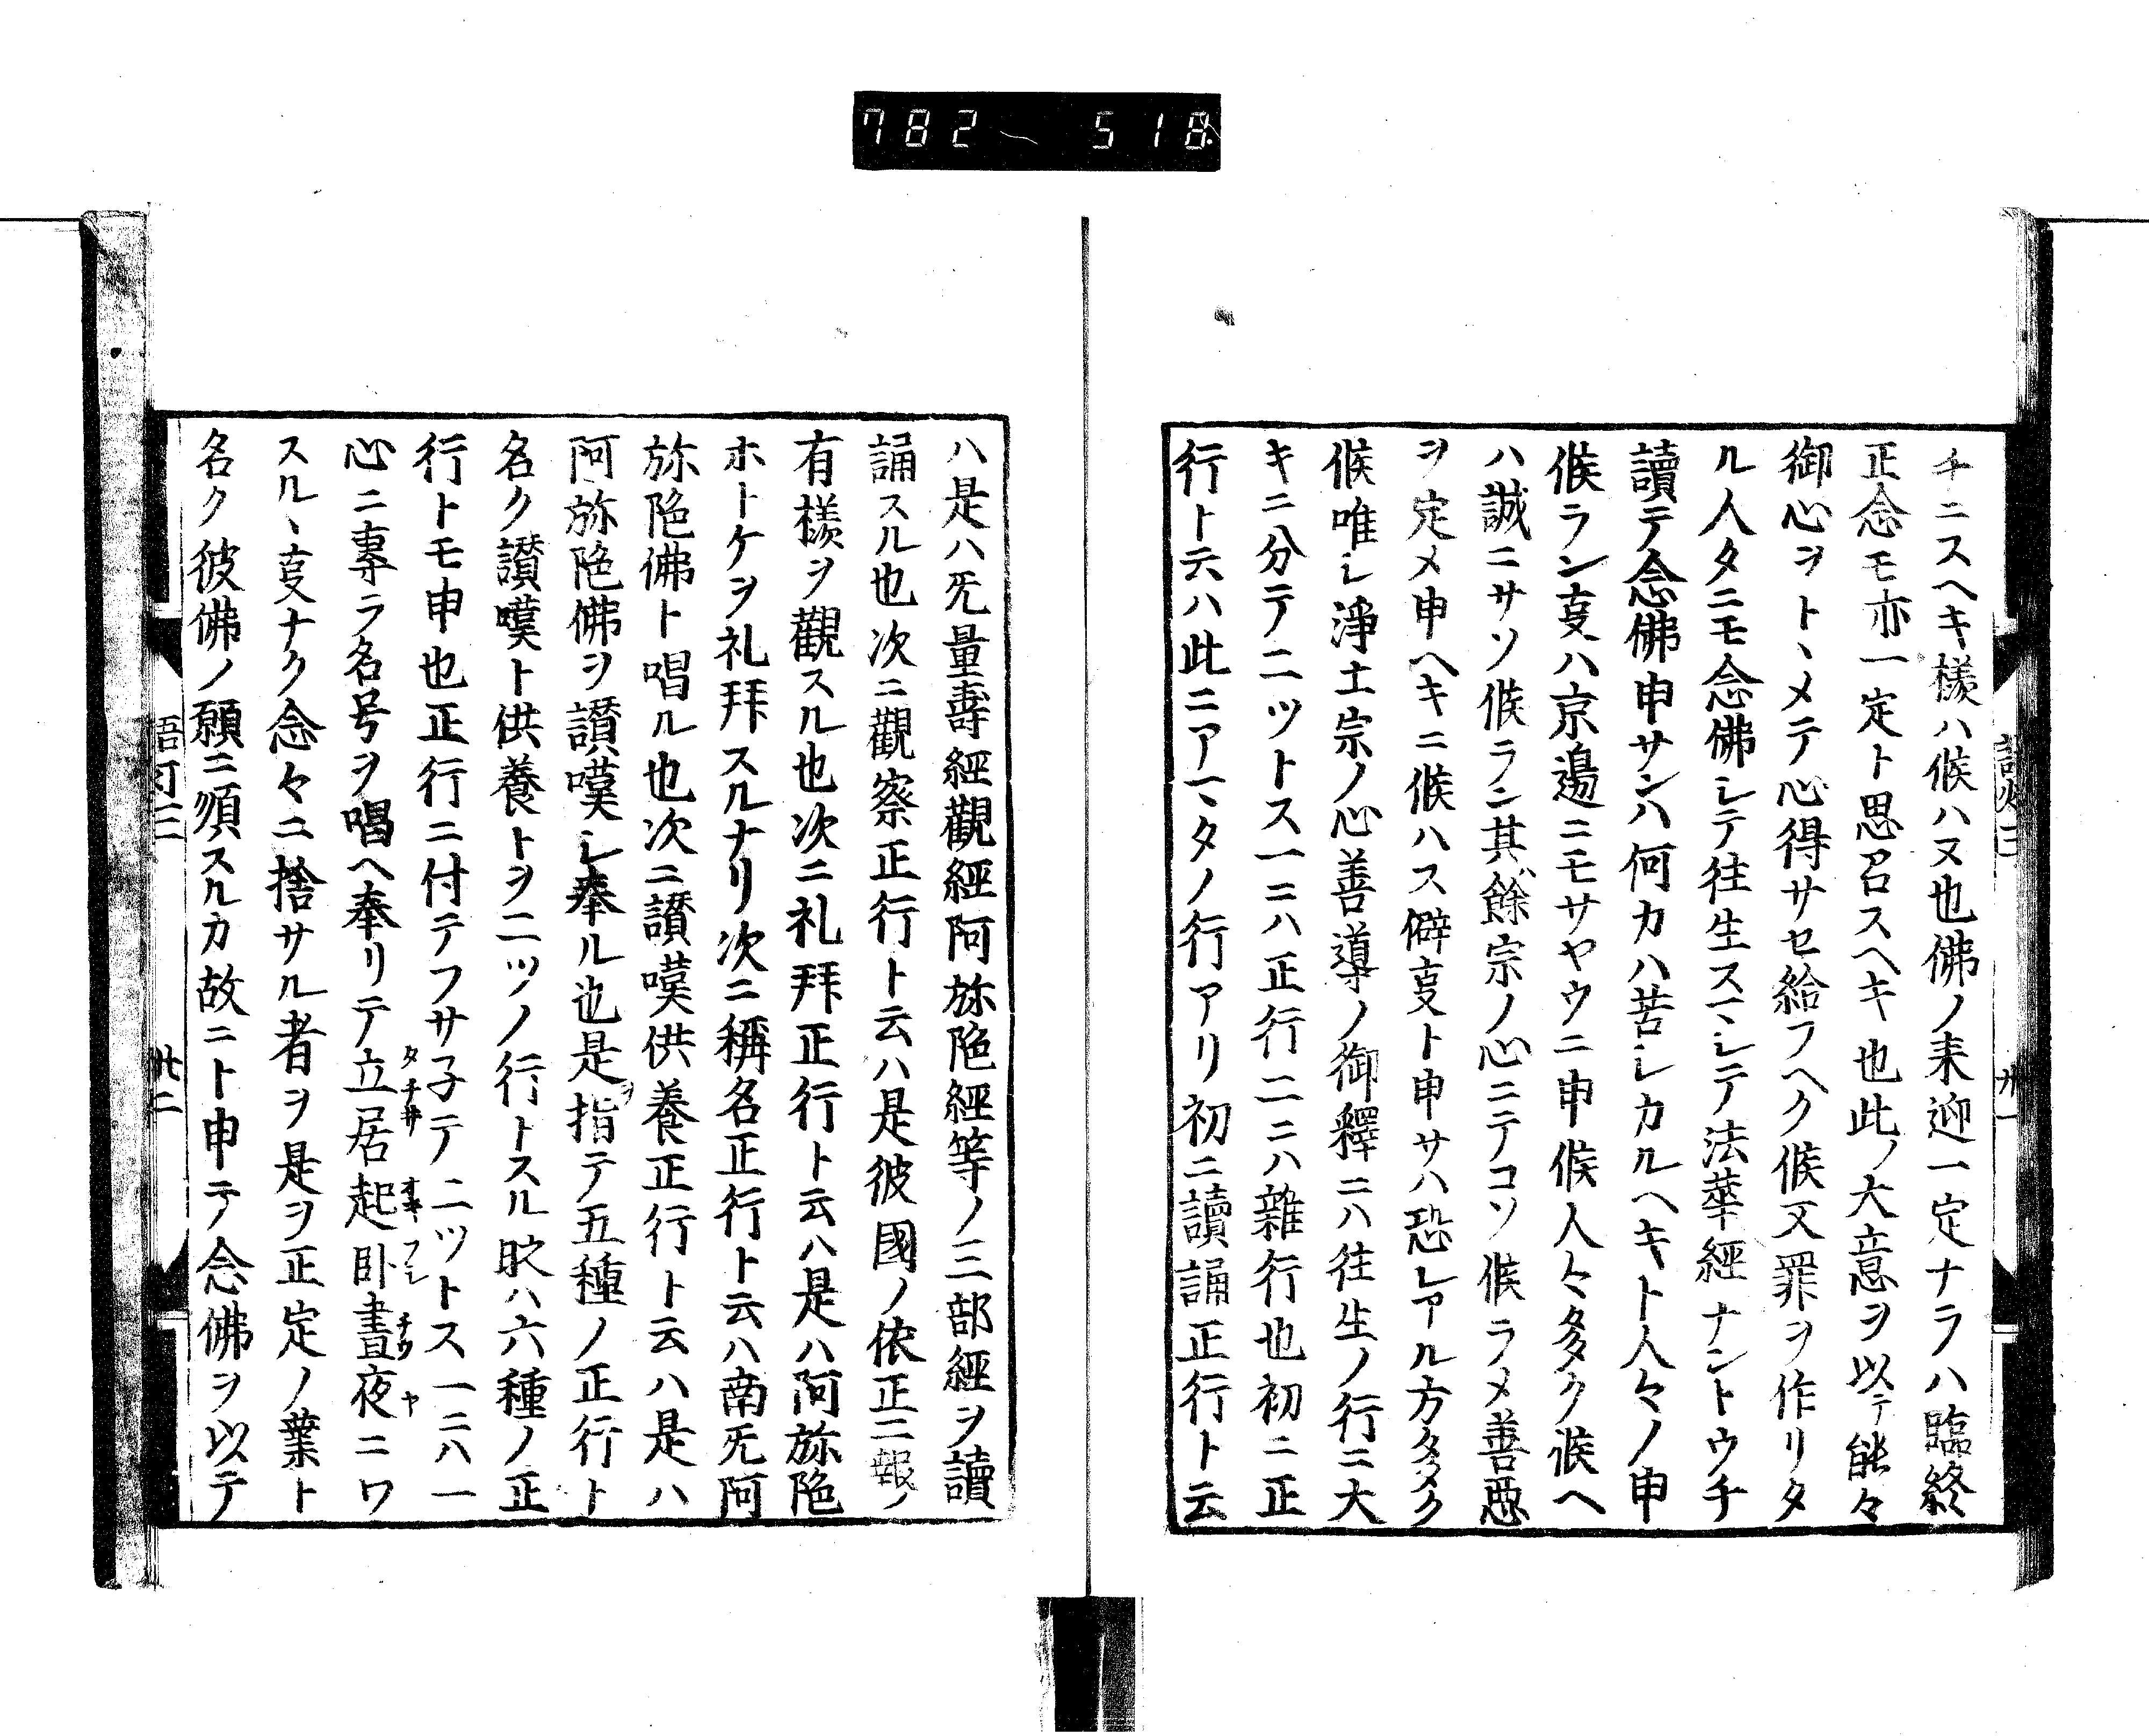 782－518
チニスヘキ樣ハ候ハヌ也佛ノ来迎一定ナラハ臨終
正念モ亦一定ト思召スヘキ也此ノ大意ヲ以テ能々
御心ヲトヽメテ心得サセ給フヘク候又罪ヲ作リタ
ル人タニモ念佛シテ往生スマシテ法華經ナントウチ
讀テ念佛申サンハ何カハ苦シカルヘキト人々ノ申
候ラン亊ハ京邉ニモサヤウニ申候人々多ク候ヘ
ハ誠ニサソ候ラン其餘宗ノ心ニテコソ候ラメ善悪
ヲ定メ申ヘキニ候ハス僻亊ト申サハ恐レアル方多ク
候唯シ淨土宗ノ心善導ノ御釋ニハ往生ノ行ニ大
キニ分テ二ツトス一ニハ正行二ニハ雜行也初ニ正
行ト云ハ此ニアマタノ行アリ初ニ讀誦正行ト云
ハ是ハ无量壽經觀經阿弥陀經等ノ三部經ヲ讀
誦スル也次ニ觀察正行ト云ハ是彼國ノ依正二報ノ
有樣ヲ觀スル也次ニ礼拜正行ト云ハ是ハ阿弥陀
ホトケヲ礼拜スルナリ次ニ稱名正行ト云ハ南无阿
弥陀佛ト唱ル也次ニ讃嘆供養正行ト云ハ是ハ
阿弥陀佛ヲ讃嘆シ奉ル也是ヲ指テ五種ノ正行ト
名ク讃嘆ト供養トヲ二ツノ行トスル時ハ六種ノ正
行トモ申也正行ニ付テフサ子テ二ツトス一ニハ一
心ニ專ラ名号ヲ唱ヘ奉リテ立居起卧晝夜ニワ
タチ井 オキフシ チウヤ
スルヽ亊ナク念々ニ捨サル者ヲ是ヲ正定ノ業ト
名ク彼佛ノ願ニ順スルカ故ニト申テ念佛ヲ以テ
語灯三 廿二